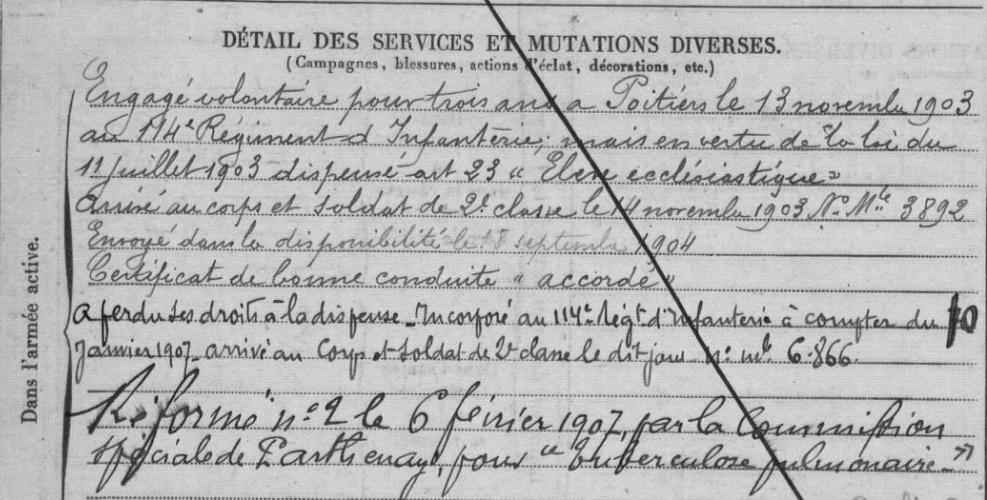 DÉTAIL DES SERVICES ET MUTATIONS DIVERSES.
(Campagnes, blessures, actions d'éclat, décorations, etc.)
Engagé volontaire pour trois ans a Poitiers le 13 novembre 1903
au 114e Régiment d'Infanterie; mais en vertu de la loi du
11 juillet 1903 dispensé art 23 "Elève ecclésiastique"
Arrivé au corps et soldat de 2e classe le 14 novembre 1903 No Mle 3892
Envoyé dans la disponibilité le 18 septembre 1904
Certificat de bonne conduite "accordé"
a perdu ses droits à la dispense _ Incorporé au 114e Régt d'Infanterie à compter du 10
Janvier 1907 _ arrivé au Corps et soldat de 2e classe le dit jour no mle 6.866.
Réformé no 2 le 6 février 1907, par la Commission
spéciale de Parthenay, pour "tuberculose pulmonaire"
Dans l'armée active.